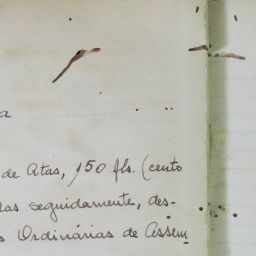 a
de Atas, 150 fls. (cento
das seguidamente, des-
s Ordinárias de Assem